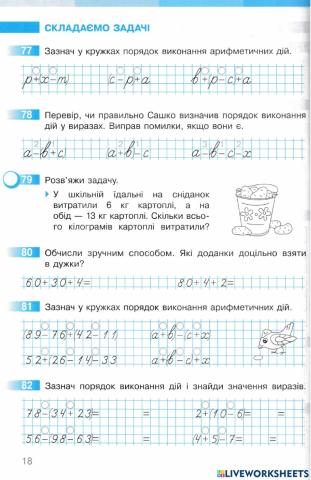 СКЛАДАЄМО ЗАДАЧІ
77 Зазнач у кружках порядок виконання арифметичних дій.
p+(x−m) (c−p)+a b+p−c+a
78 Перевір, чи правильно Сашко визначив порядок виконання
дій у виразах. Виправ помилки, якщо вони є.
a−(b+c) (a+b)−c a−b−c−x
79 Розв'яжи задачу.
У шкільній їдальні на сніданок
витратили 6 кг картоплі, а на
обід — 13 кг картоплі. Скільки всьо-
го кілограмів картоплі витратили?
80 Обчисли зручним способом. Які доданки доцільно взяти
в дужки?
60+30+4= 80+4+2=
81 Зазнач у кружках порядок виконання арифметичних дій.
89−76+42−11
52+26−14−33
82 Зазнач порядок виконання дій і знайди значення виразів.
78−(34+23)= = 2+(10−6)= =
56−(98−63)= = (4+5)−7= =
18
LIVEWORKSHEETS